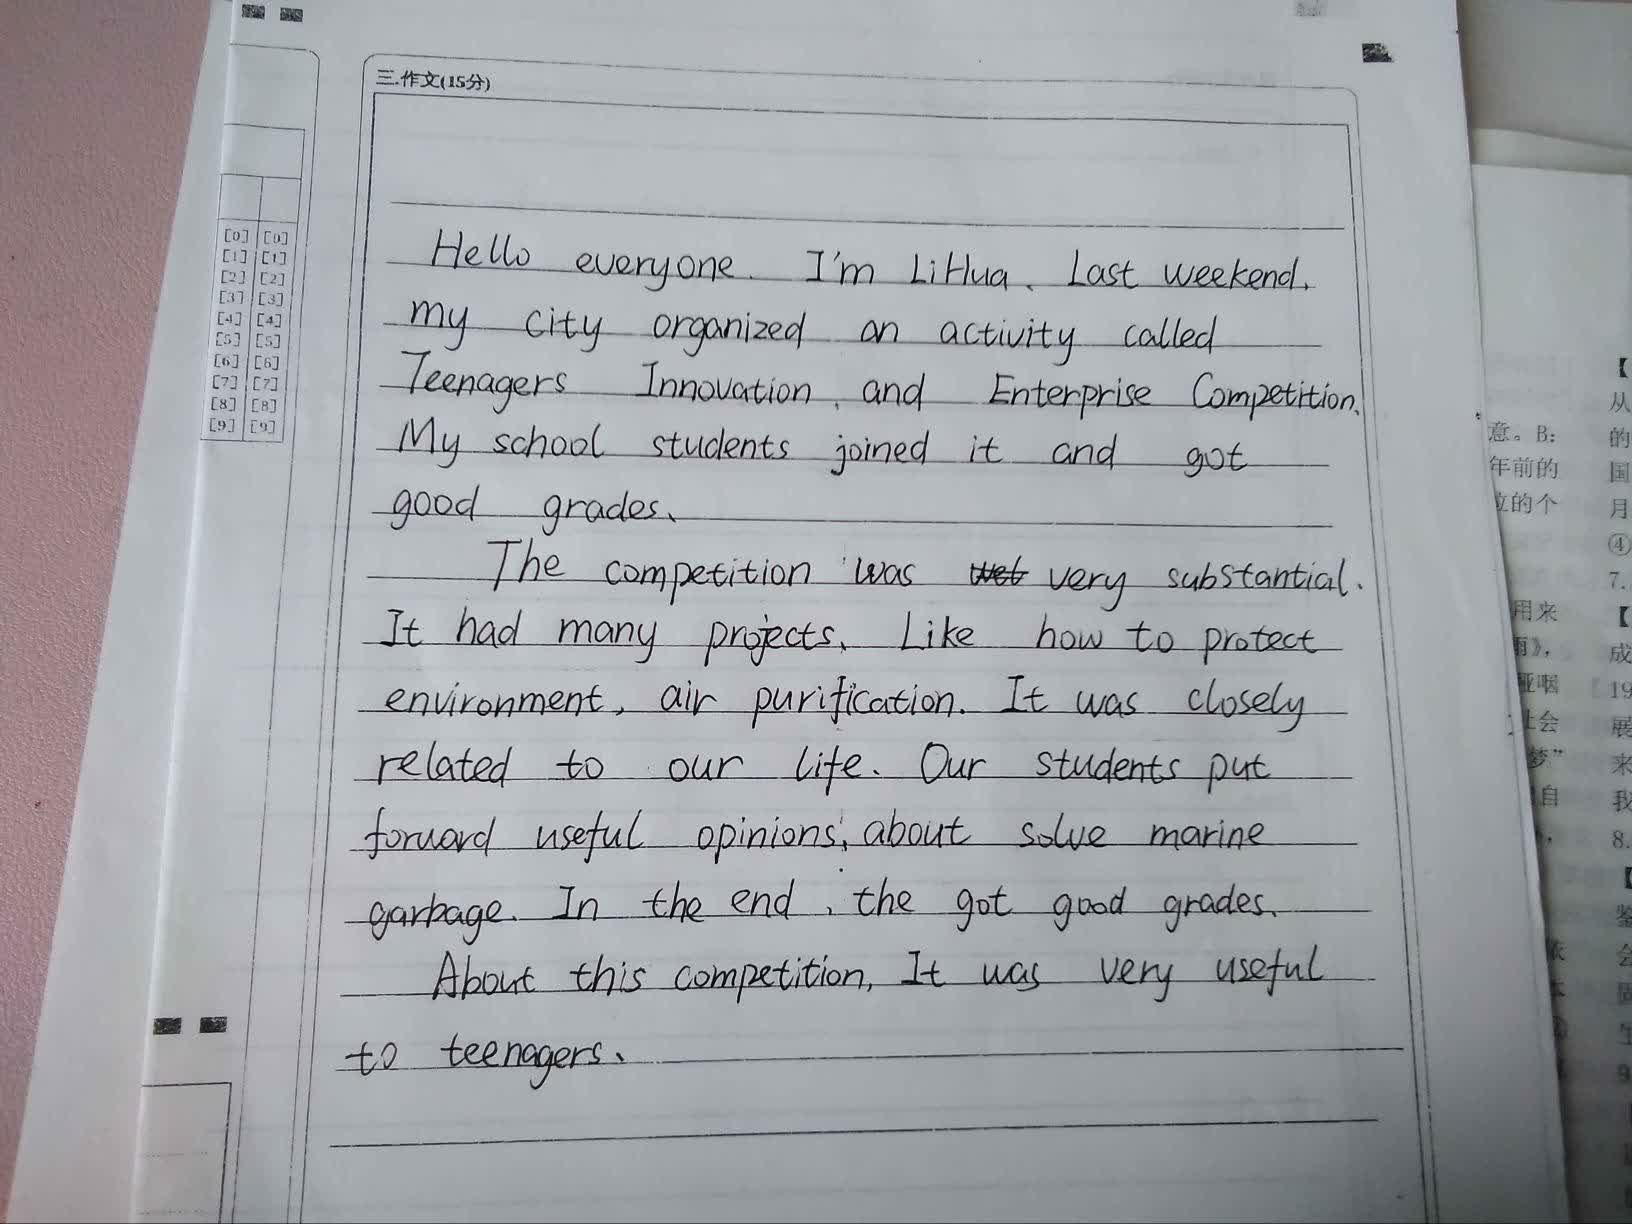 三.作文(15分)
[0] [0]
[1] [1]
[2] [2]
[3] [3]
[4] [4]
[5] [5]
[6] [6]
[7] [7]
[8] [8]
[9] [9]
Hello everyone. I'm LiHua. Last weekend,
my city organized an activity called
Teenagers Innovation and Enterprise Competition.
My school students joined it and got
good grades.
The competition was very substantial.
It had many projects. Like how to protect
environment, air purification. It was closely
related to our life. Our students put
forward useful opinions, about solve marine
garbage. In the end, the got good grades.
About this competition, It was very useful
to teenagers.
意。B:
年前的
立的个
用来
雨》,
亚咽
社会
梦”
自
【
从
的
国
月
④
7.
【
成
19
展
来
我
8.